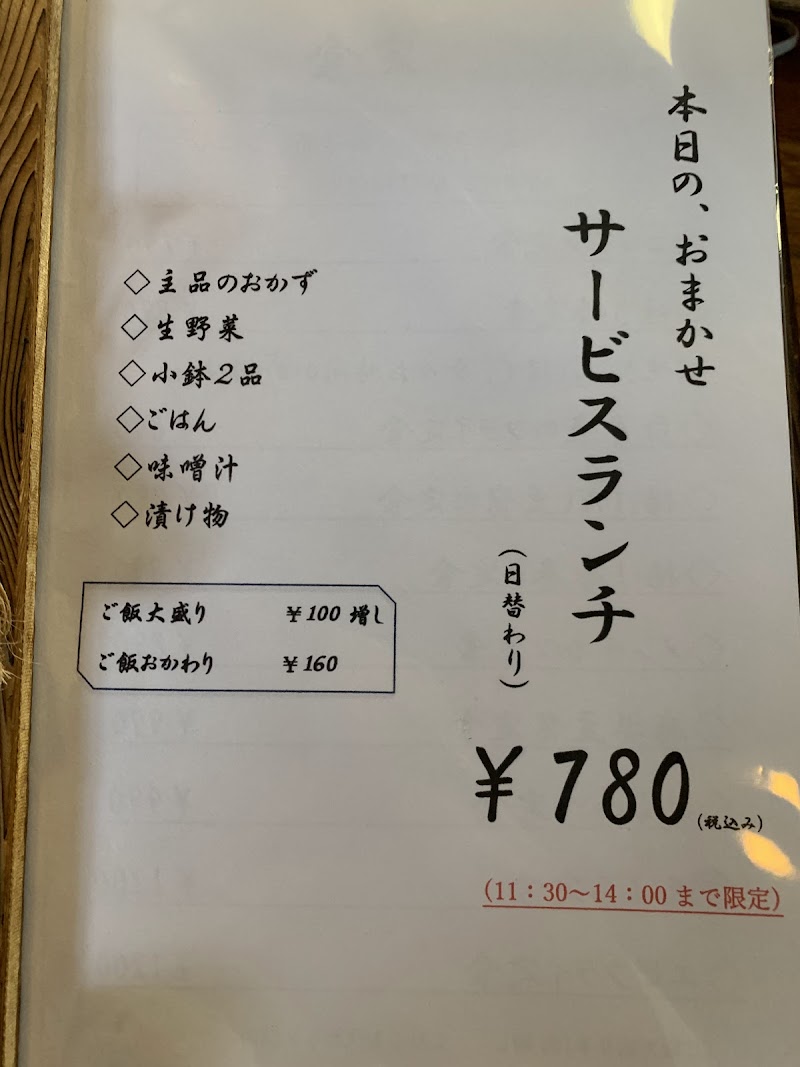 本日の、おまかせ
サービスランチ
(日替わり)
¥780(税込み)
(11：30～14：00まで限定)
◇主品のおかず
◇生野菜
◇小鉢2品
◇ごはん
◇味噌汁
◇漬け物
ご飯大盛り ¥100 増し
ご飯おかわり ¥160